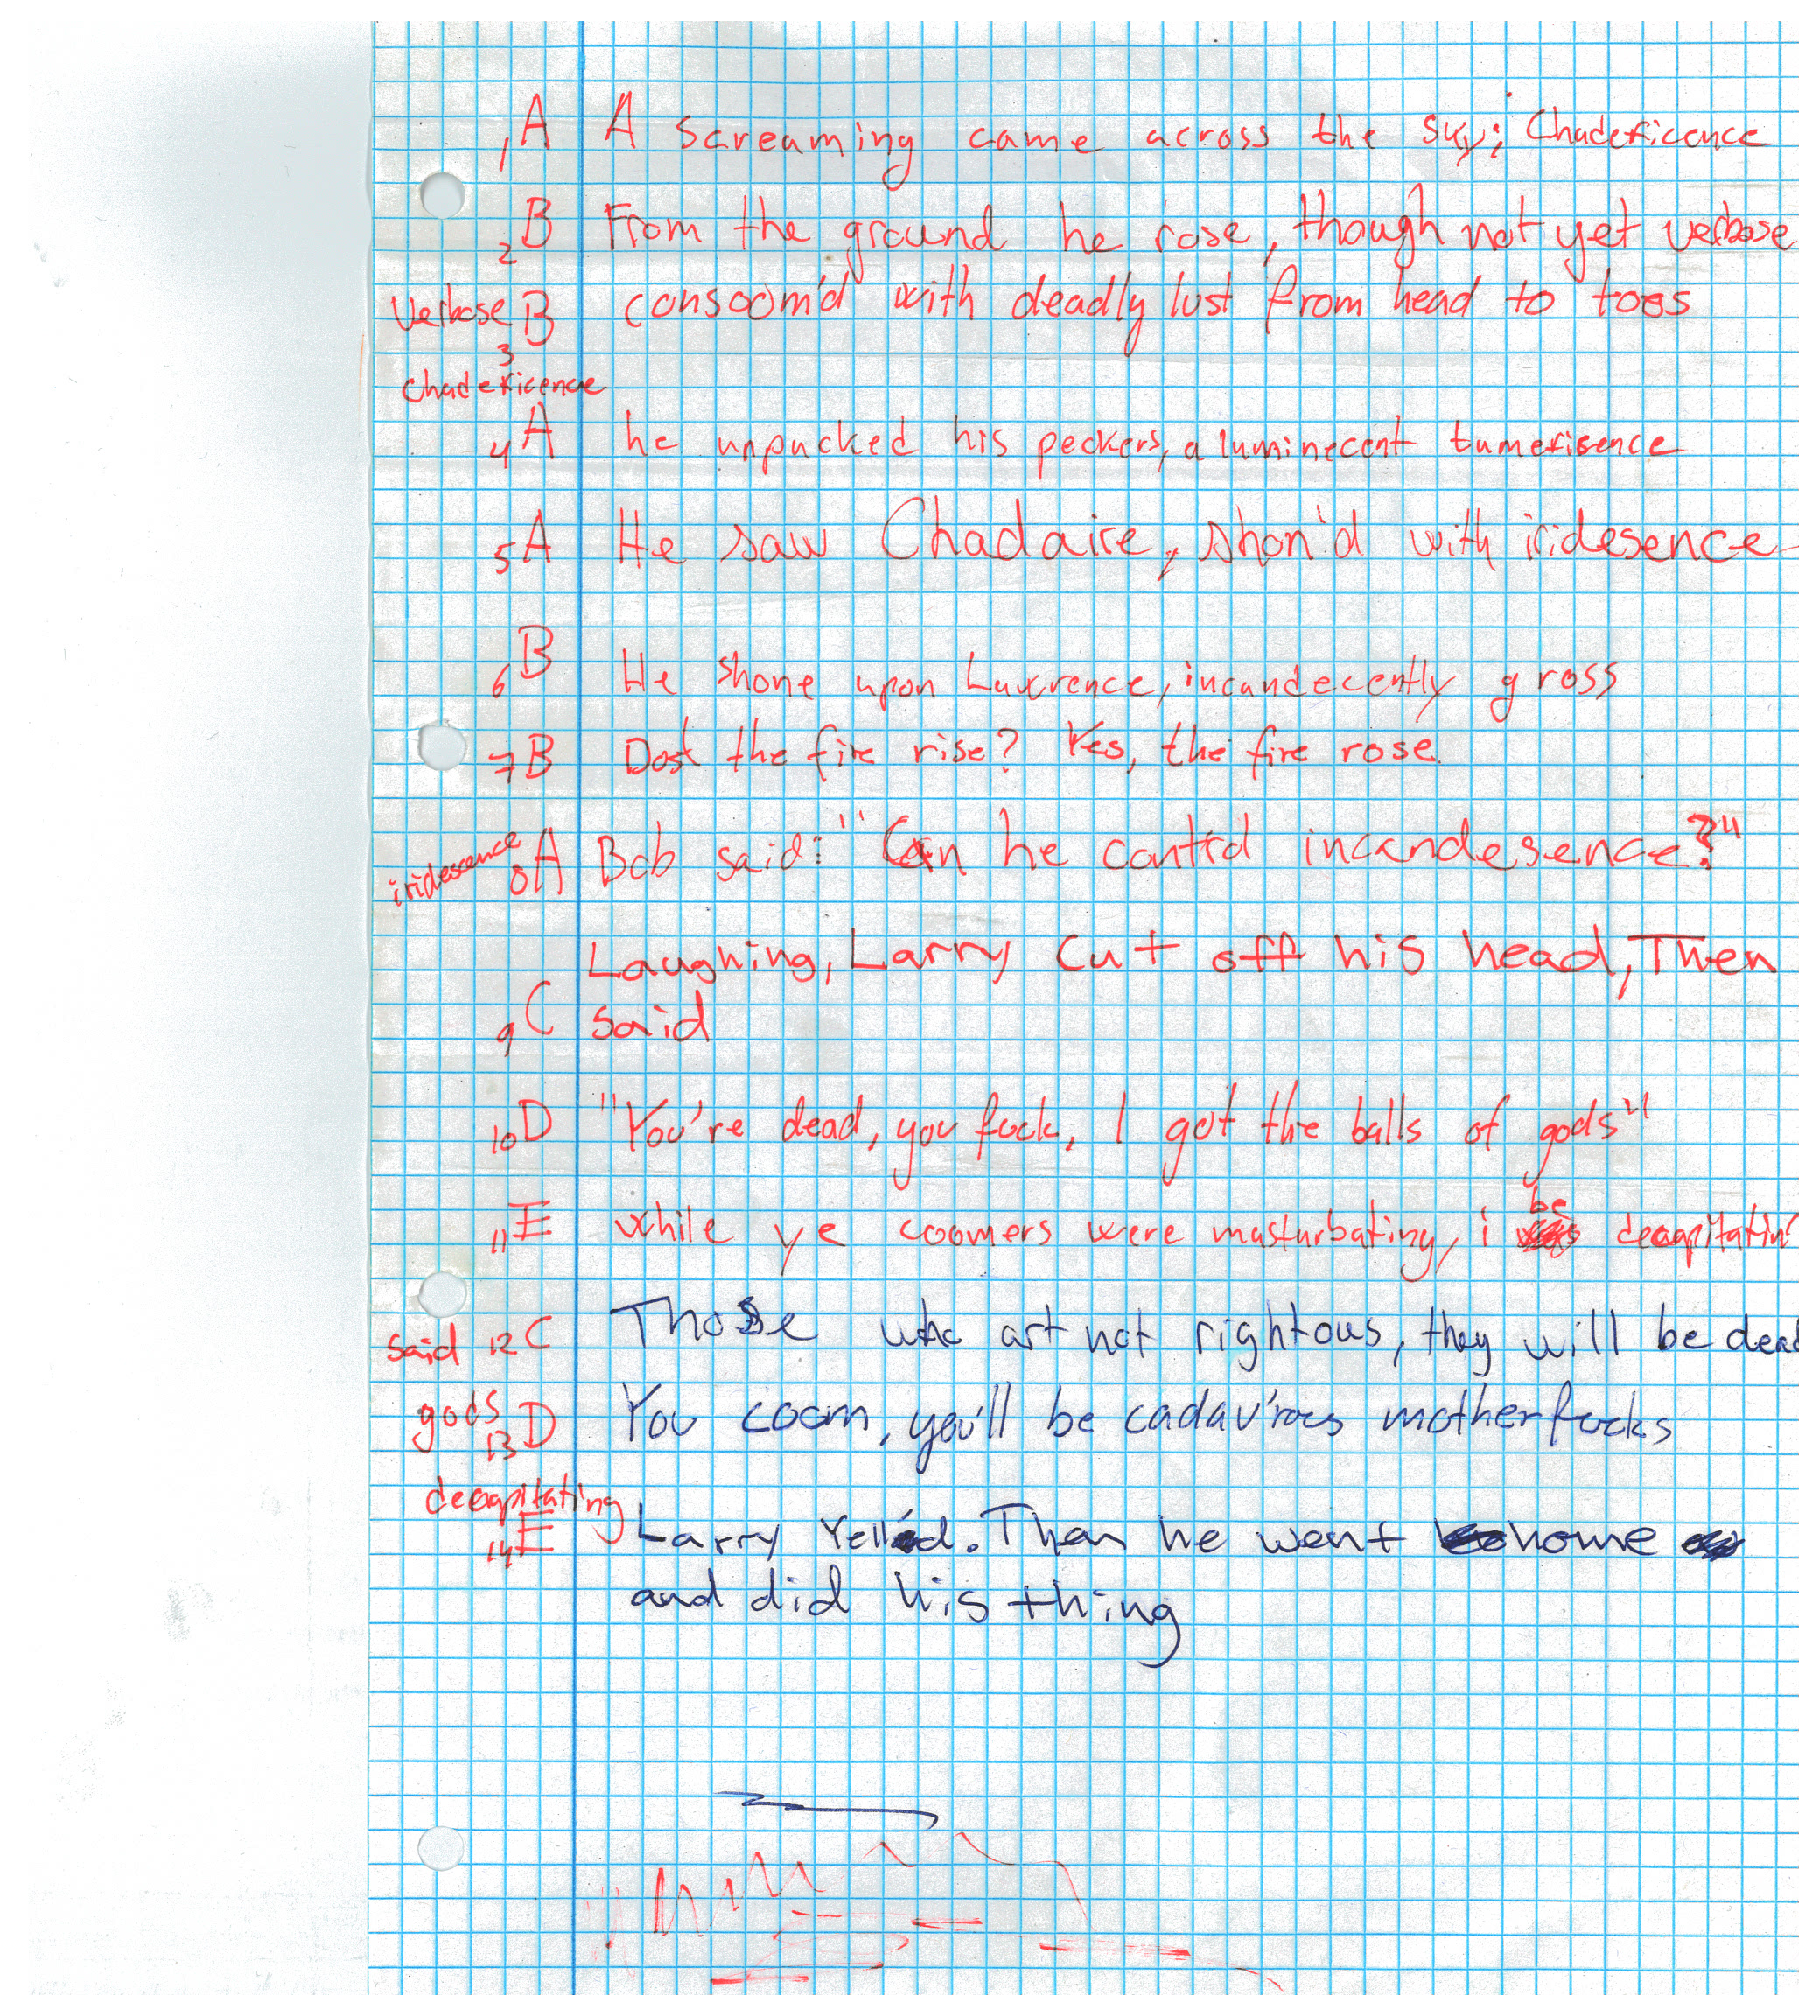 1 A A screaming came across the sky; Chadericence
2 B From the ground he rose, though not yet verbose
Verbose B consoom'd with deadly lust from head to toes
3
Chadericence
4 A he unpacked his peckers, a luminecent tumerisence
5 A He saw Chadaire, shon'd with iridesence
6 B He shone upon Lawrence, incandecently gross
7 B Dost the fire rise? Yes, the fire rose.
iridescence 8 A Bob said: "Can he control incandesence?"
Laughing, Larry cut off his head, Then
9 C said
10 D "You're dead, you fuck, I got the balls of gods"
be
11 E while ye coomers were masturbating, i decapitatin'
said 12 C Those who art not rightous, they will be dead
gods 13 D You coom, you'll be cadav'rous motherfucks
decapitating
14 E Larry Yelled. Then he went home
and did his thing